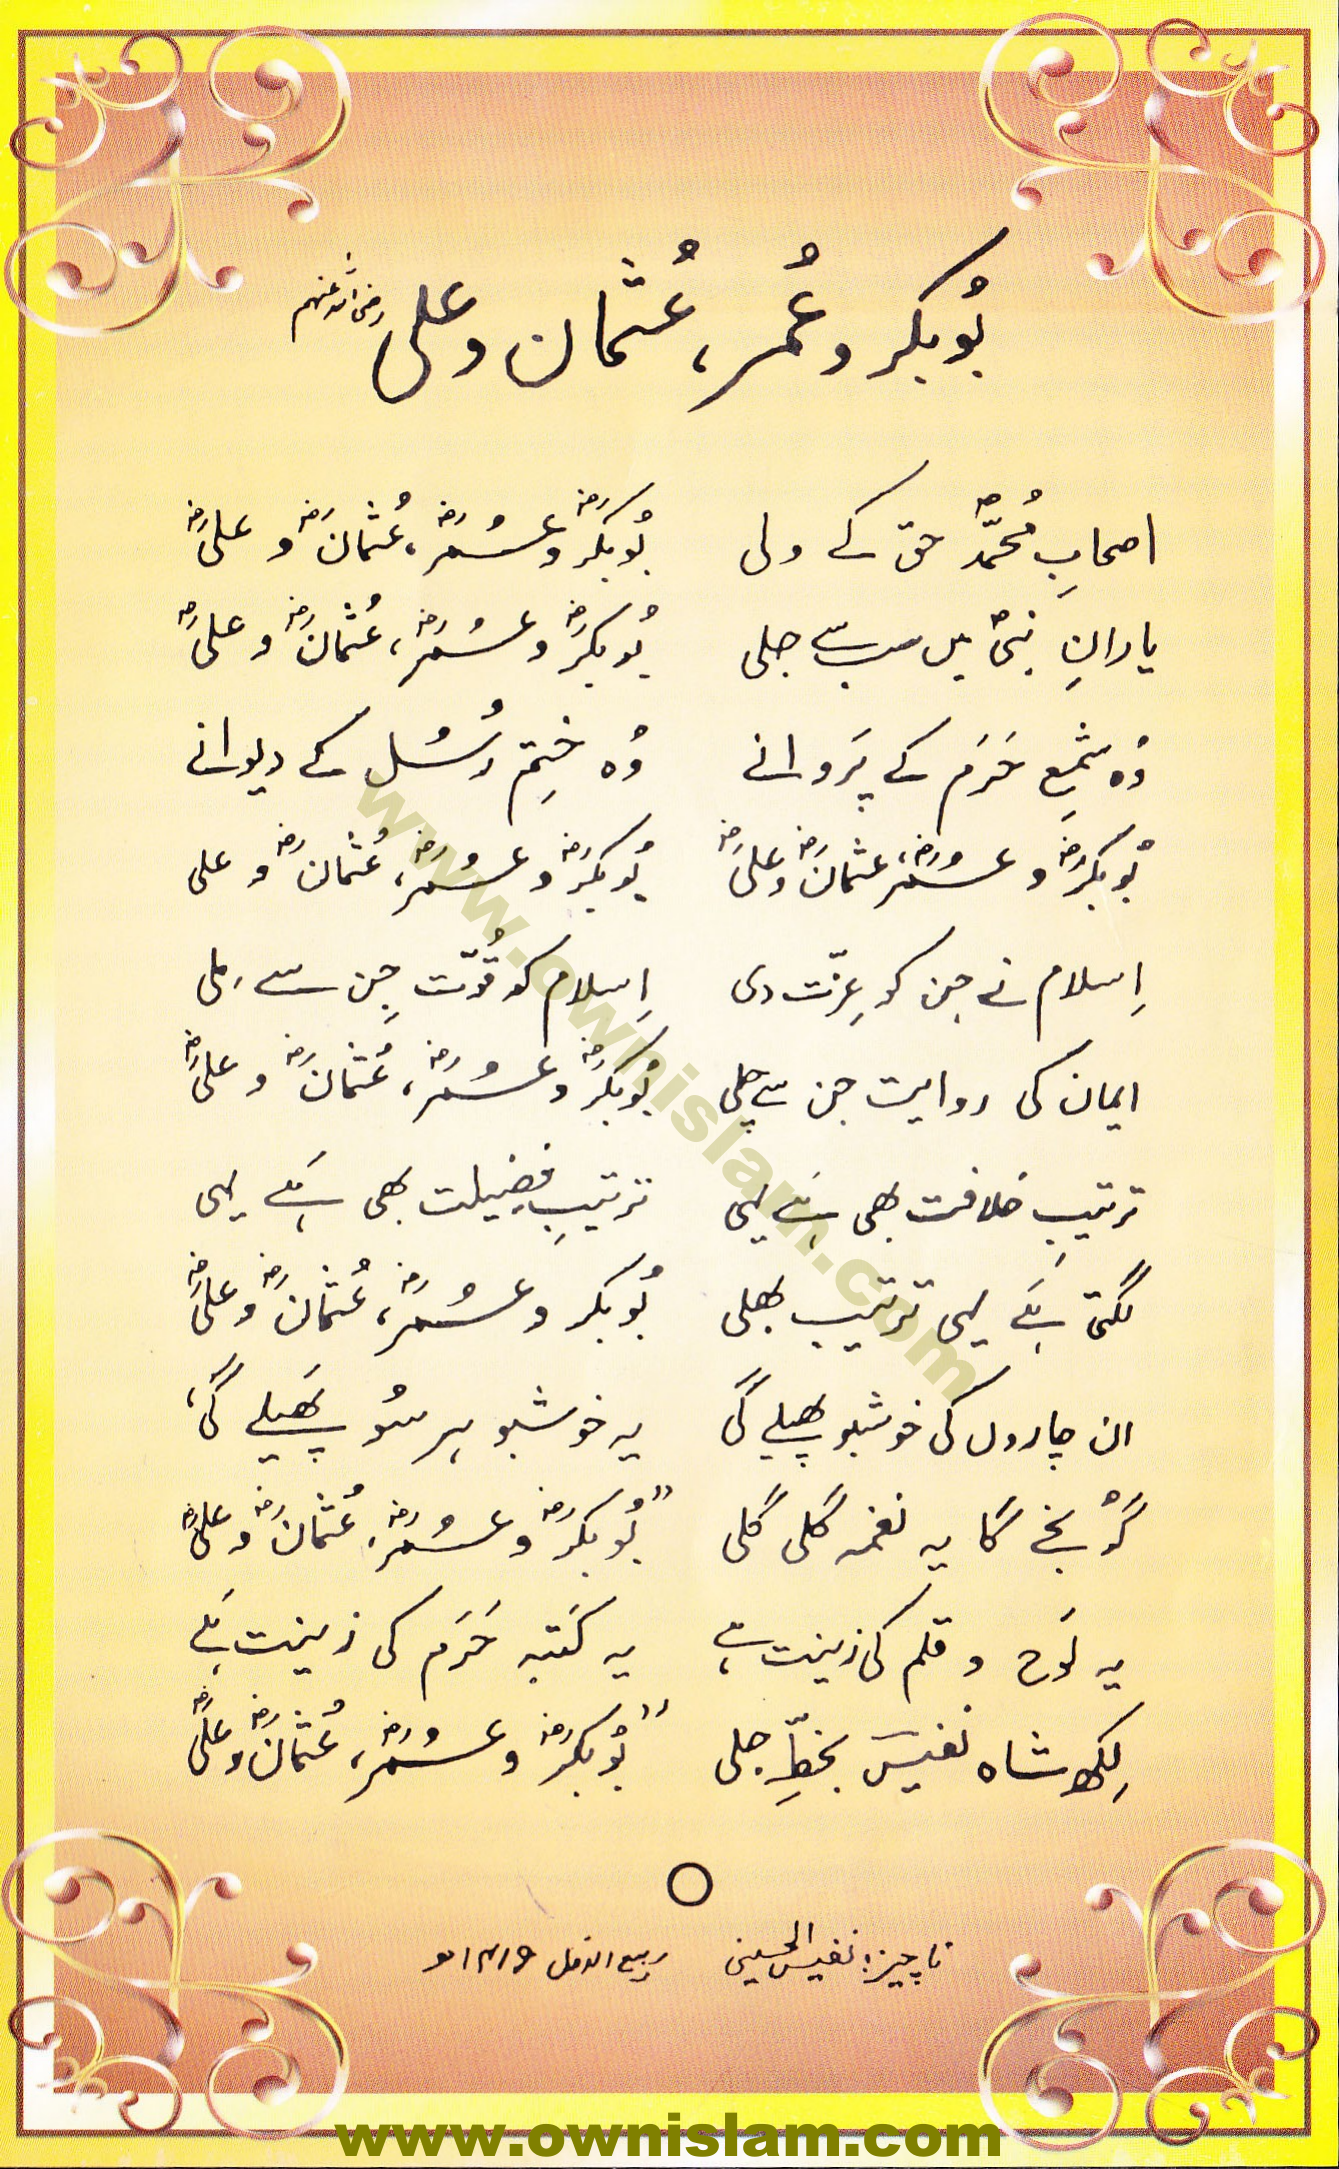 بُوبکر و عُمر، عُثمان و علی رضی اللہ عنہم
اصحابِ مُحمّدؐ حق کے ولی بُوبکرؓ و عُمرؓ، عُثمانؓ و علیؓ
یارانِ نبیؐ میں سب سے جلی بُوبکرؓ و عُمرؓ، عُثمانؓ و علیؓ
وُہ شمعِ حَرَم کے پَروانے وُہ ختمِ رُسُل کے دیوانے
بُوبکرؓ و عُمرؓ، عثمانؓ و علیؓ بُوبکرؓ و عُمرؓ، عُثمانؓ و علی
اِسلام نے جن کو عِزّت دی اِسلام کو قُوّت جِن سے مِلی
ایمان کی روایت جن سے چلی بُوبکرؓ و عُمرؓ، عُثمانؓ و علیؓ
ترتیبِ خلافت بھی ہَے یہی ترتیبِ فضیلت بھی ہَے یہی
لگتی ہَے یہی ترتیب بھلی بُوبکر و عُمرؓ، عُثمانؓ و علیؓ
ان چاروں کی خوشبو پھیلے گی یہ خوشبو ہر سُو پھَیلے گی،
گُونجے گا یہ نغمہ گلی گلی ”بُوبکرؓ و عُمرؓ، عُثمانؓ و علیؓ
یہ لَوح و قلم کی زینت ہے یہ کَتبہ حَرَم کی زینت ہَے
لِکھ شاہ نفیسؔ بخطِّ جلی ”بُوبکرؓ و عُمرؓ، عُثمانؓ و علیؓ
ناچیز: نفیس الحسینی ربیع الاول ۱۴۱۶ھ
www.ownislam.com
www.ownislam.com